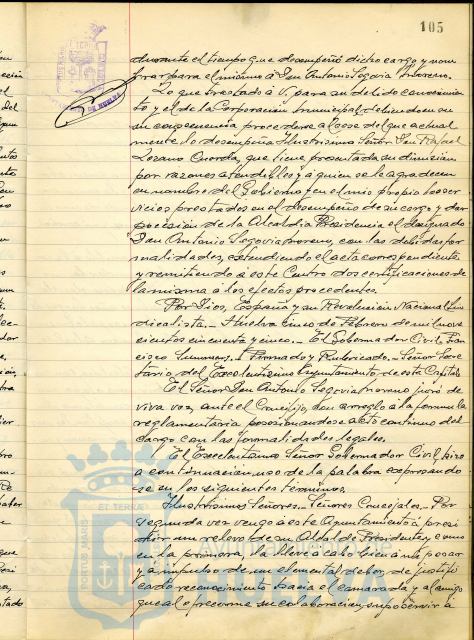 105
durante el tiempo que desempeñó dicho cargo y nom
brar para el mismo a Don Antonio Segovia Moreno.
Lo que traslado a V. para su debido conocimien
to y el de la Corporación Municipal debiendo en
su consecuencia procederse al cese del que actual
mente lo desempeña Ilustrísimo Señor Don Rafael
Lozano Cuerda, que tiene presentada su dimisión
por razones atendibles y a quien se le agradecen
en nombre del Gobierno y en el mío propio los ser
vicios prestados en el desempeño de su cargo y dar
posesión de la Alcaldía Presidencia el designado
Don Antonio Segovia Moreno, con las debidas for
malidades, extendiendo el acta correspondiente
y remitiendo a este Centro dos certificaciones de
la misma a los efectos procedentes.
Por Dios, España y su Revolución Nacional Sin
dicalista.- Huelva cinco de Febrero de mil nove
cientos cincuenta y cinco.- El Gobernador Civil, Fran
cisco Summers.- Firmado y Rubricado.- Señor Secre
tario del Excelentísimo Ayuntamiento de esta Capital.
El Señor Don Antonio Segovia Moreno juró de
viva voz, ante el Concejo, con arreglo a la fórmula
reglamentaria posesionándose acto continuo del
cargo con las formalidades legales.
El Excelentísimo Señor Gobernador Civil, hizo
a continuación uso de la palabra expresándo
se en los siguientes términos.
Ilustrísimos Señores.- Señores Concejales.- Por
segunda vez vengo a este Ayuntamiento a presi
dir un relevo de su Alcalde Presidente, y como
en la primera, lo llevo a cabo sin a mi pesar
y a impulso de un elemental deber, de justifi
cado reconocimiento hacia el camarada y al amigo
que al ofrecerme su colaboración, supo servir a